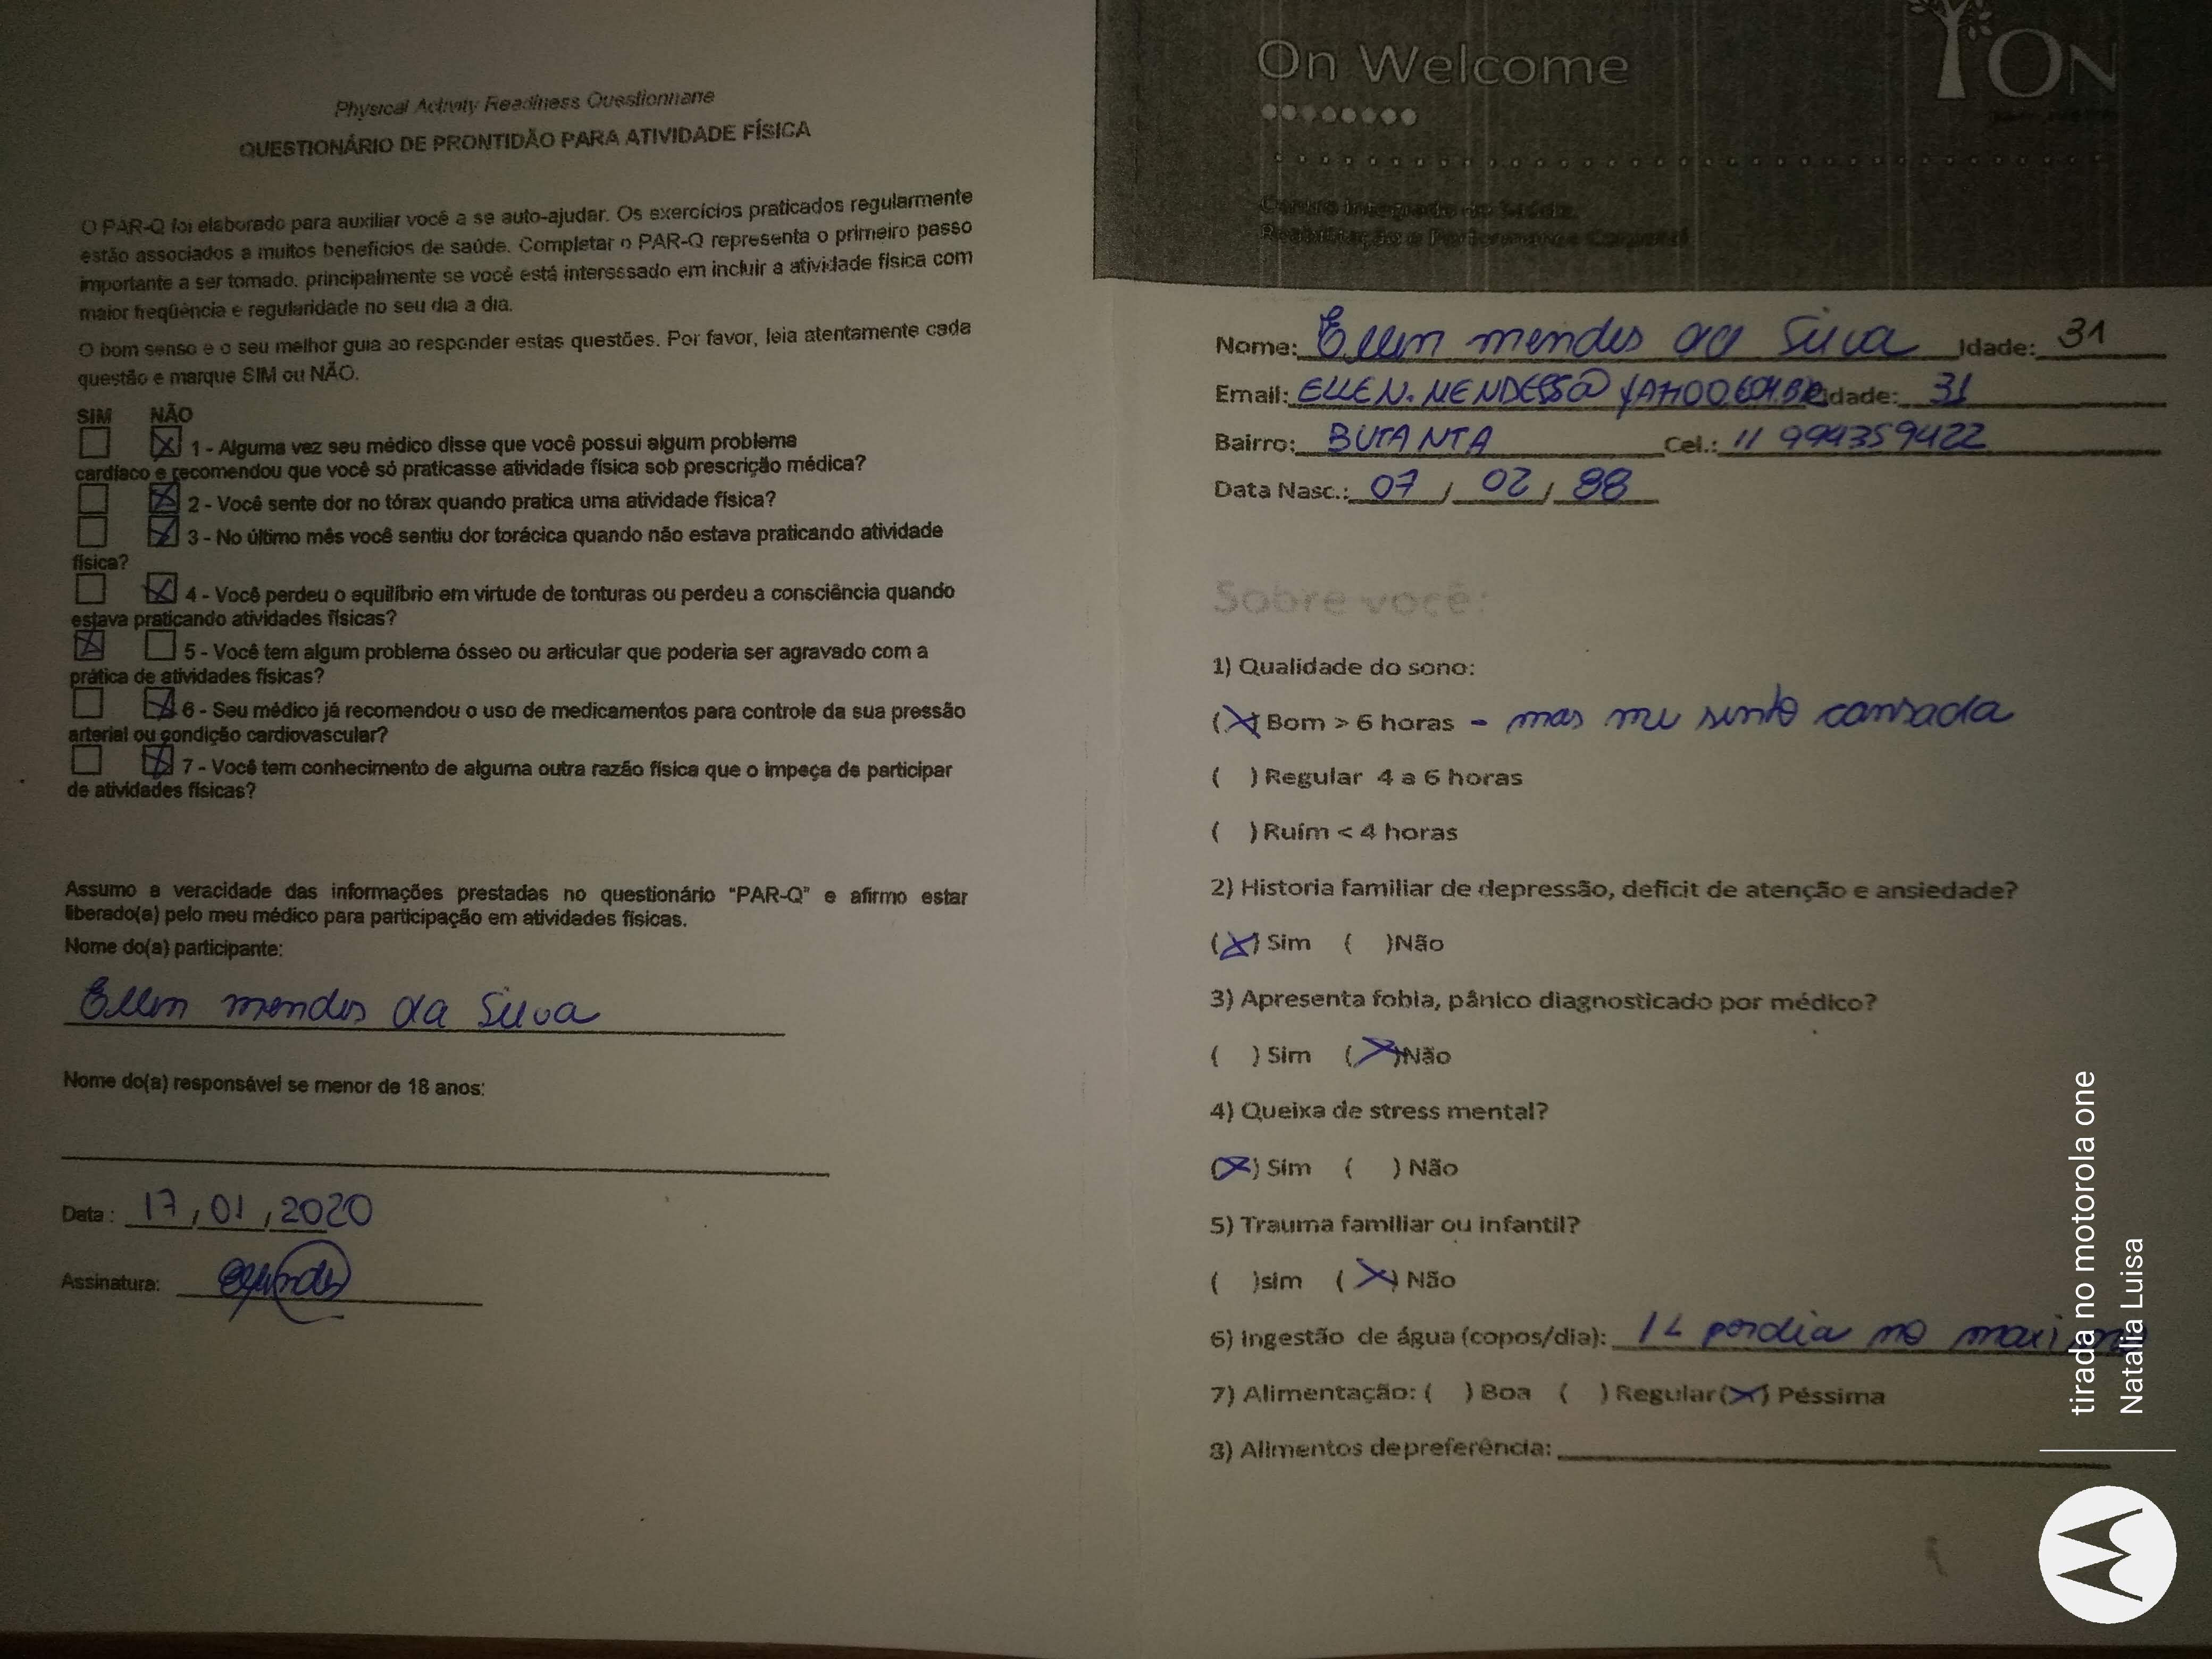 Physical Activity Readiness Questionnaire
QUESTIONÁRIO DE PRONTIDÃO PARA ATIVIDADE FÍSICA
O PAR-Q foi elaborado para auxiliar você a se auto-ajudar. Os exercícios praticados regularmente
estão associados a muitos benefícios de saúde. Completar o PAR-Q representa o primeiro passo
importante a ser tomado, principalmente se você está interessado em incluir a atividade física com
maior freqüência e regularidade no seu dia a dia.
O bom senso é o seu melhor guia ao responder estas questões. Por favor, leia atentamente cada
questão e marque SIM ou NÃO.
SIM NÃO
☐ ☒ 1 - Alguma vez seu médico disse que você possui algum problema
cardíaco e recomendou que você só praticasse atividade física sob prescrição médica?
☐ ☒ 2 - Você sente dor no tórax quando pratica uma atividade física?
☐ ☒ 3 - No último mês você sentiu dor torácica quando não estava praticando atividade
física?
☐ ☒ 4 - Você perdeu o equilíbrio em virtude de tonturas ou perdeu a consciência quando
estava praticando atividades físicas?
☒ ☐ 5 - Você tem algum problema ósseo ou articular que poderia ser agravado com a
prática de atividades físicas?
☐ ☒ 6 - Seu médico já recomendou o uso de medicamentos para controle da sua pressão
arterial ou condição cardiovascular?
☐ ☒ 7 - Você tem conhecimento de alguma outra razão física que o impeça de participar
de atividades físicas?
Assumo a veracidade das informações prestadas no questionário "PAR-Q" e afirmo estar
liberado(a) pelo meu médico para participação em atividades físicas.
Nome do(a) participante:
Ellen mendes da Silva
Nome do(a) responsável se menor de 18 anos:
Data : 17, 01, 2020
Assinatura:
On Welcome
ON
Nome: Ellen mendes da Silva Idade: 31
Email: ELLEN.MENDESS@YAHOO.COM.BR Idade: 31
Bairro: BUTANTA Cel.: 11 994359422
Data Nasc.: 07 / 02 / 88
Sobre você:
1) Qualidade do sono:
(X) Bom > 6 horas - mas me sinto cansada
( ) Regular 4 a 6 horas
( ) Ruim < 4 horas
2) Historia familiar de depressão, deficit de atenção e ansiedade?
(X) Sim ( )Não
3) Apresenta fobia, pânico diagnosticado por médico?
( ) Sim (X)Não
4) Queixa de stress mental?
(X) Sim ( ) Não
5) Trauma familiar ou infantil?
( )sim (X) Não
6) Ingestão de água (copos/dia): 1L por dia no maximo
7) Alimentação: ( ) Boa ( ) Regular (X) Péssima
8) Alimentos de preferência:
tirada no motorola one
Natalia Luisa